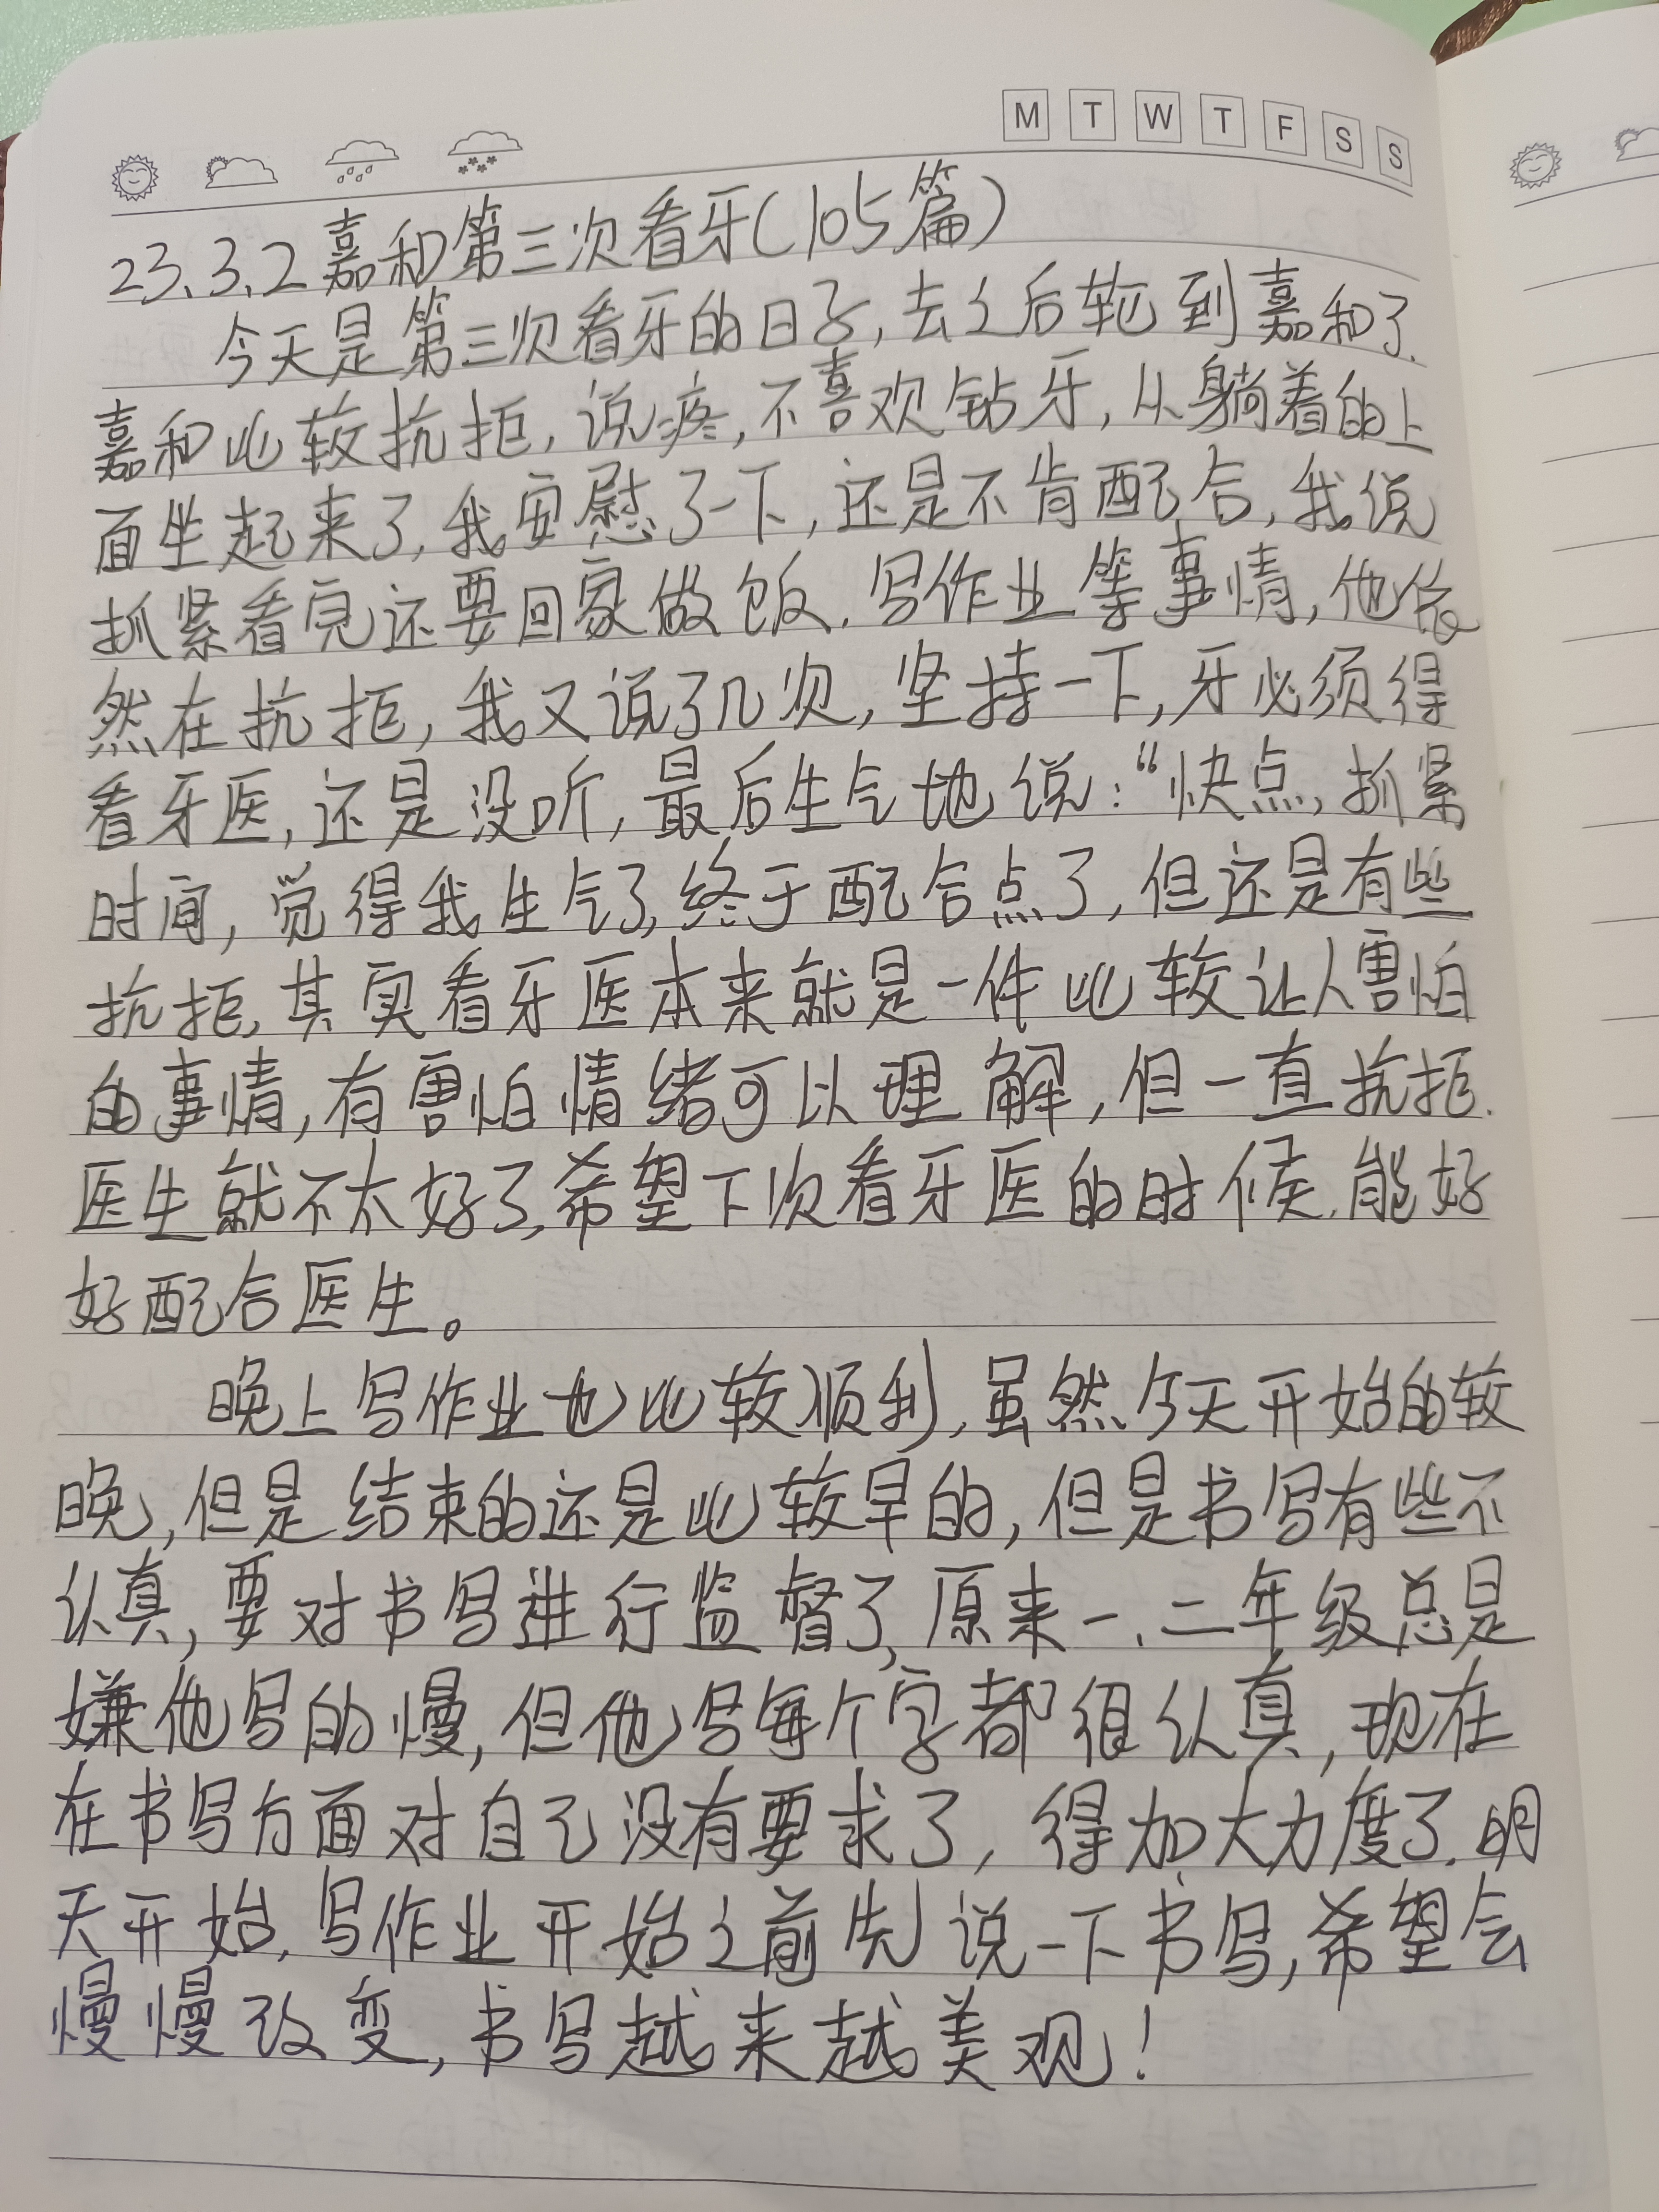 M T W T F S S
23.3.2嘉和第三次看牙(105篇)
今天是第三次看牙的日子,去之后轮到嘉和了.
嘉和比较抗拒,说疼,不喜欢钻牙,从躺着的上
面坐起来了,我安慰了一下,还是不肯配合,我说
抓紧看完还要回家做饭.写作业等事情,他依
然在抗拒,我又说了几次,坚持一下,牙必须得
看牙医,还是没听,最后生气地说:“快点,抓紧
时间,觉得我生气了,终于配合点了,但还是有些
抗拒,其实看牙医本来就是一件比较让人害怕
的事情,有害怕情绪可以理解,但一直抗拒.
医生就不太好了,希望下次看牙医的时候.能好
好配合医生。
晚上写作业也比较顺利,虽然今天开始的较
晚,但是结束的还是比较早的,但是书写有些不
认真,要对书写进行监督了,原来一、二年级总是
嫌他写的慢,但他写每个字都很认真,现在
在书写方面对自己没有要求了,得加大力度了.明
天开始,写作业开始之前先说一下书写,希望会
慢慢改变,书写越来越美观!